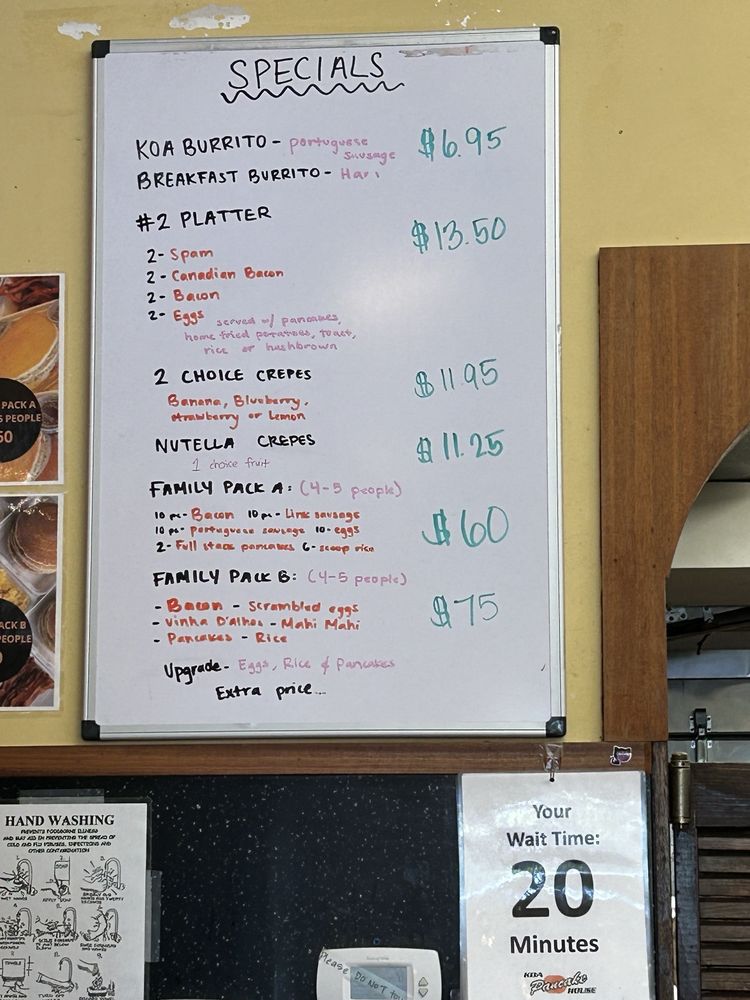 SPECIALS
KOA BURRITO - portuguese sausage $6.95
BREAKFAST BURRITO -
#2 PLATTER $13.50
2- Spam
2- Canadian Bacon
2- Bacon
2- Eggs served w/ pancakes,
home fried potatoes, toast,
rice or hashbrown
2 CHOICE CREPES $11.95
Banana, Blueberry,
strawberry or Lemon
NUTELLA CREPES $11.25
1 choice fruit
FAMILY PACK A: (4-5 people)
10 pc- Bacon 10 pc- Link sausage $60
10 pc- portuguese sausage 10- eggs
2- Full stack pancakes 6- scoop rice
FAMILY PACK B: (4-5 people)
- Bacon - Scrambled eggs $75
- Vinha D'alhos - Mahi Mahi
- Pancakes - Rice
Upgrade - Eggs, Rice & Pancakes
Extra price...
PACK A
PEOPLE
PACK B
PEOPLE
HAND WASHING
PREVENTS FOODBORNE ILLNESS
AND MAY AID IN PREVENTING THE SPREAD OF
COLD AND FLU VIRUSES, INFECTIONS AND
OTHER CONTAMINATION
Please DO NOT
Your
Wait Time:
20
Minutes
KOA
Pancake
HOUSE